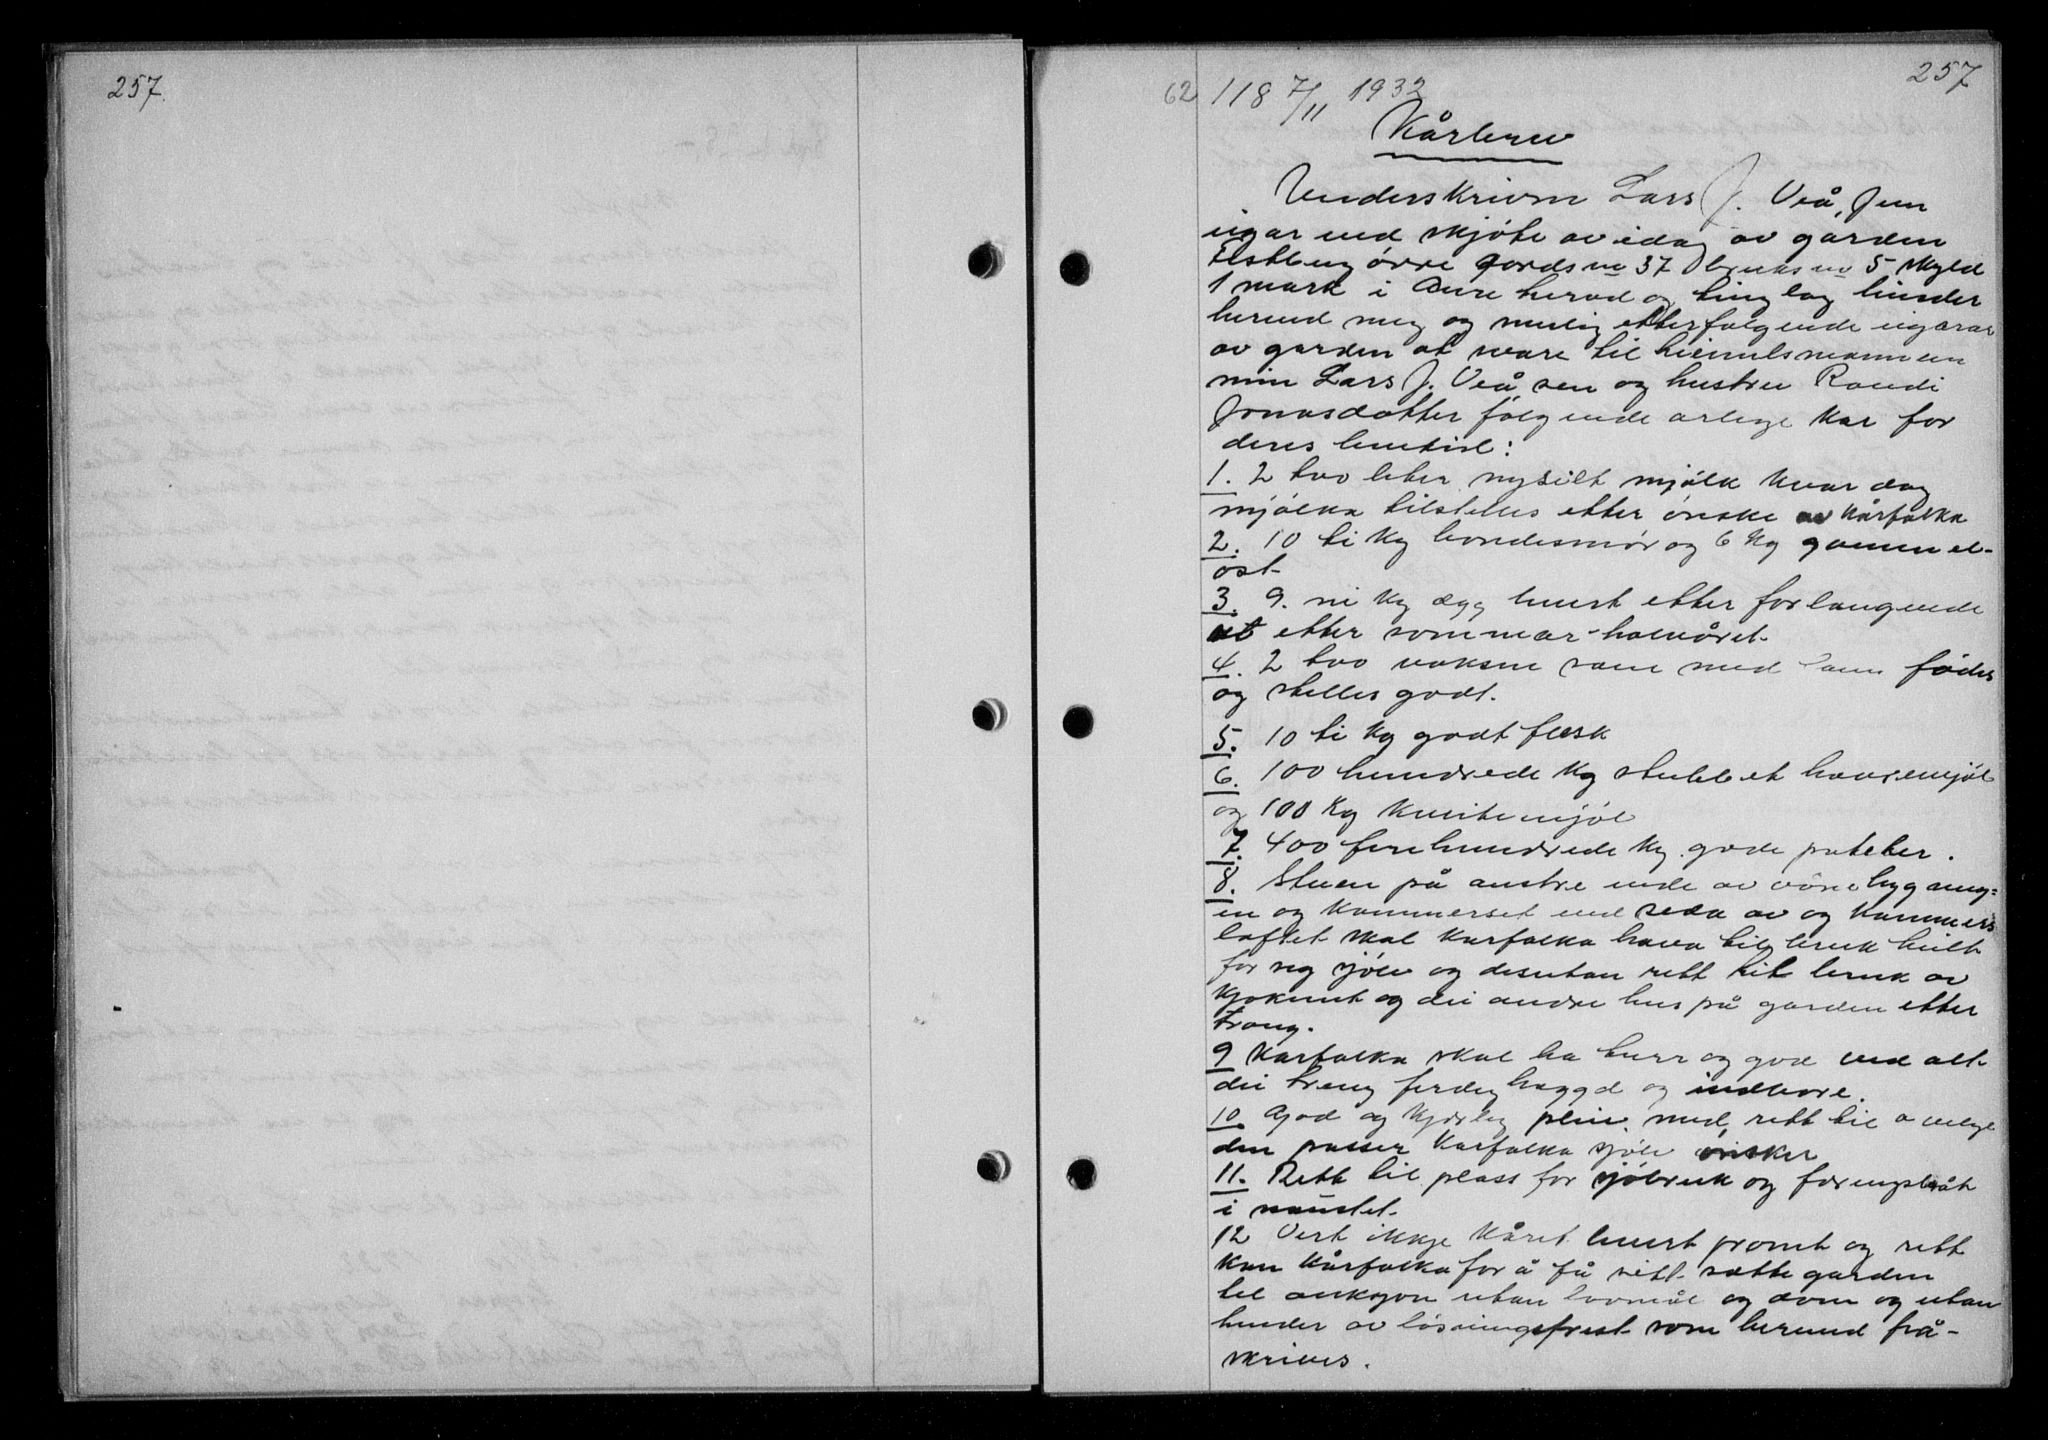 257.
257
62 118 7/11 1932
Kårbrev
Underskrivne Lars J. Veå, jun
eigar ved skjøte av idag av garden
øvre gards no 37 bruks no 5 skyld
1 mark i Aure herad og tinglag binder
herved meg og mulig etterfølgende eigarar
av garden at svare til heimelsmannen
min Lars J. Veå sen og hustru Randi
Jonasdotter følgende årlege kår for
deres levetid:
1. 2 two liter nysilt mjølk kvar dag
mjølka tilstelles etter ønske av kårfolka
2. 10 ti kg bondesmør og 6 kg gammel-
ost
3. 9. ni kg egg levert etter forlangende
ut etter sommar-halvåret
4. 2 two voksne sau med lam fødes
og stelles godt.
5. 10 ti kg godt flesk
6. 100 hundrede kg havremjøl
og 100 kg kveitemjøl
7. 400 firehundrede kg. gode poteter.
8. Stuen på austre ende av våningbygning-
en og kammerset ved seda av og kammers
loftet skal kårfolka hava til bruk heilt
for seg sjølv og desutan rett til bruk av
kjøkenet og dei andre hus på garden etter
trong.
9 Kårfolka skal ha turr og god ved alt
dei treng ferdig hoggd og indbore.
10 God og kjærleg pleie. med rett til å velge
den passer kårfolka sjølv ønsker
11. Rett til plass for sjøbruk og færingsbåt
i naustet.
12 Vert ikkje kåret levert promt og rett
kan kårfolka for å få sitt sætte garden
til auksjon utan lovmål og dom og utan
hinder av løsningsfrist som herved frå-
skrives.